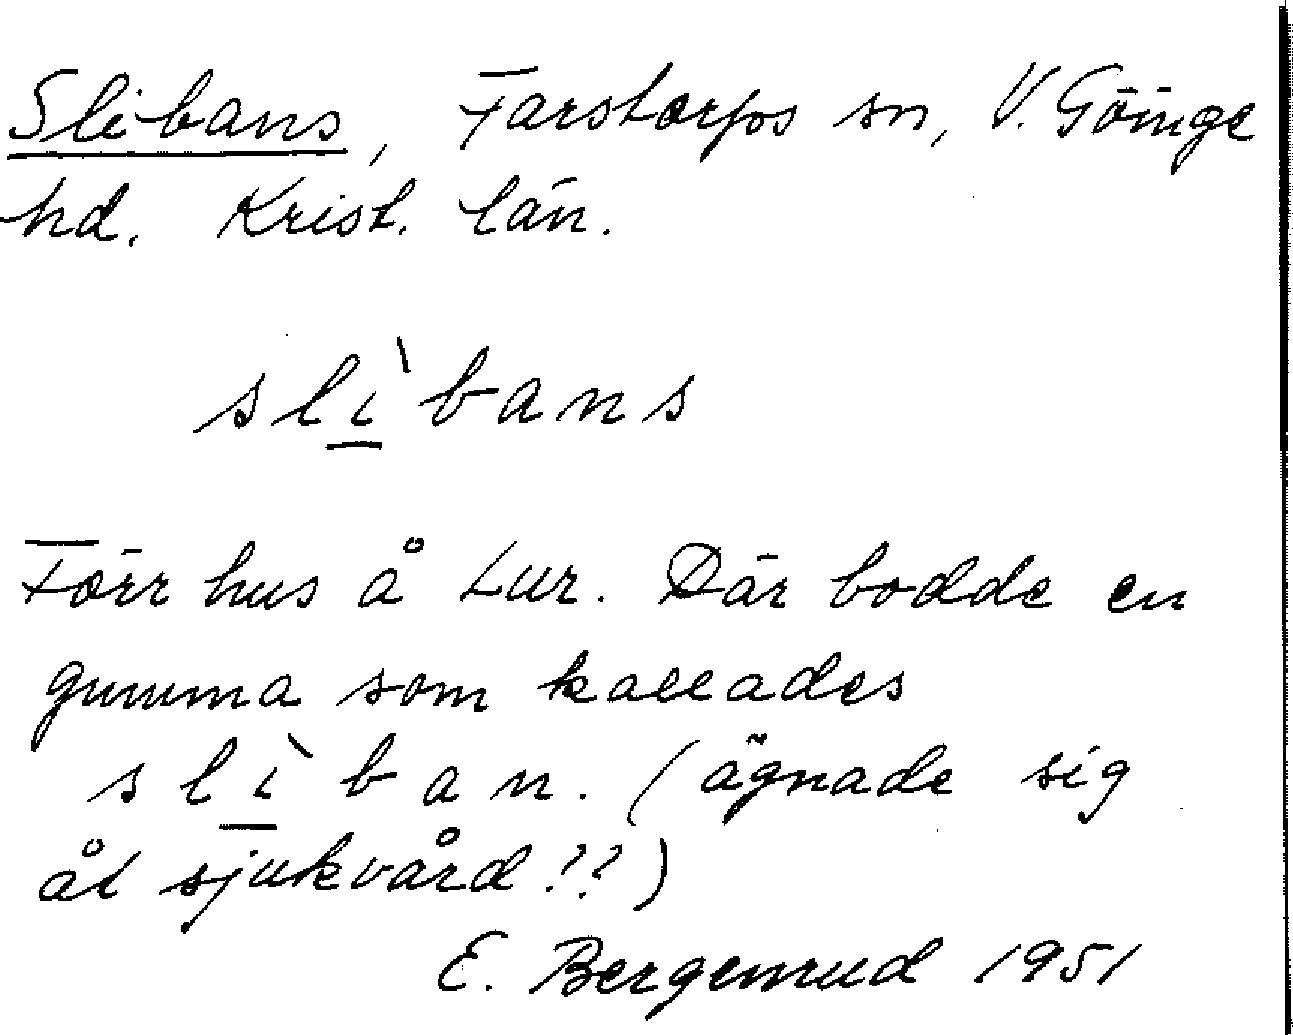 Slibans, Farstorps sn, V. Göinge
hd. Krist. län.
slìbans
Förr hus å Lur. Där bodde en
gumma som kallades
slìban. (ägnade sig
åt sjukvård??)
E. Bergenrud 1951